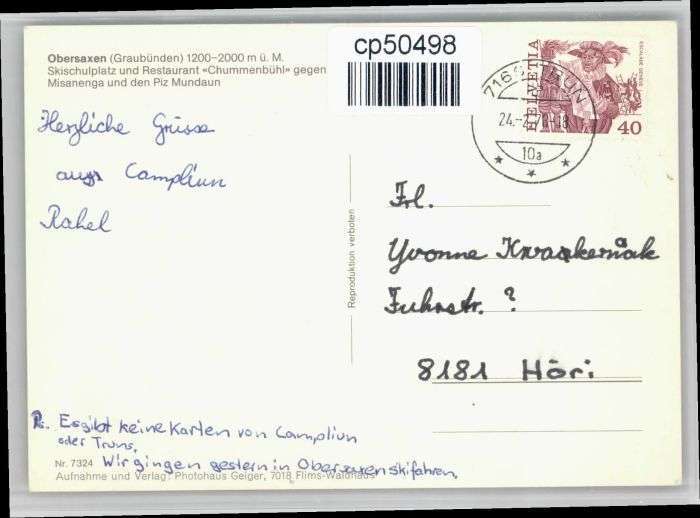 Obersaxen (Graubünden) 1200–2000 m ü. M.
Skischulplatz und Restaurant «Chummenbühl» gegen
Misanenga und den Piz Mundaun
cp50498
HELVETIA
40
24.-2.78-18
10a
Herzliche Grüsse
aus Campliun
Rahel
Reproduktion verboten
Frl.
Yvonne Kwakernaak
Fuhrstr. ?
8181 Höri
Ps. Es gibt keine Karten von Campliun
oder Truns.
Wir gingen gestern in Obersaxen skifahren.
Nr. 7324
Aufnahme und Verlag: Photohaus Geiger, 7018 Flims-Waldhaus